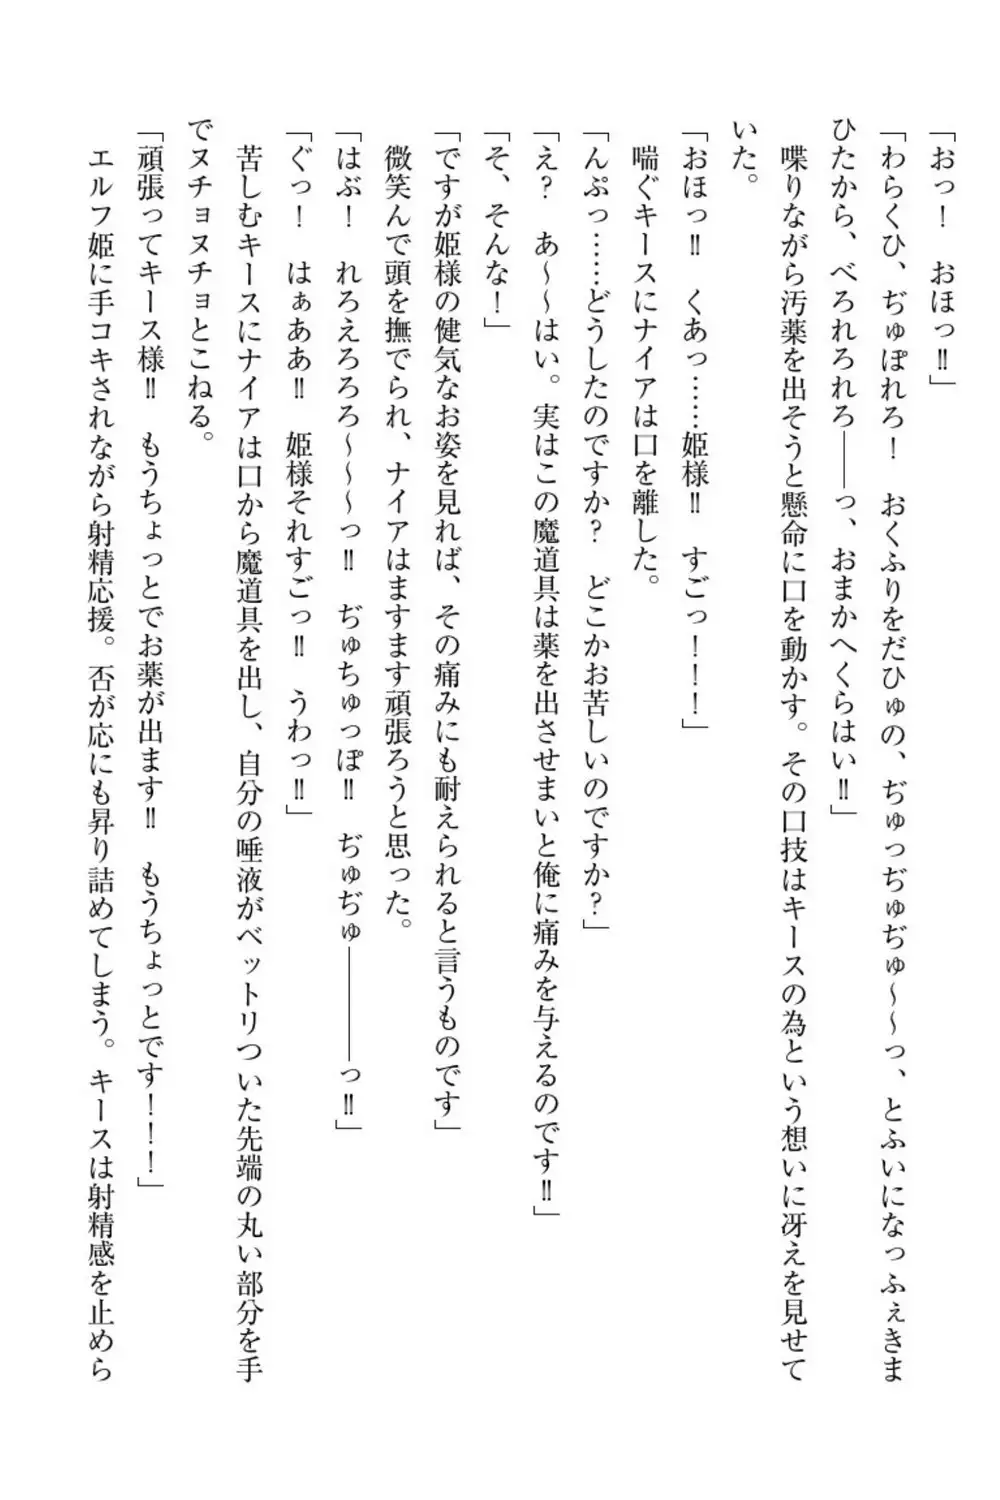 「おっ！　おほっ‼」
「わらくひ、ぢゅぽれろ！　おくふりをだひゅの、ぢゅっぢゅぢゅ～～っ、とふいになっふぇきま
ひたから、べろれろれろ――っ、おまかへくらはい‼」
　喋りながら汚薬を出そうと懸命に口を動かす。その口技はキースの為という想いに冴えを見せて
いた。
「おほっ‼　くあっ……姫様‼　すごっ！！！」
　喘ぐキースにナイアは口を離した。
「んぷっ……どうしたのですか？　どこかお苦しいのですか？」
「え？　あ～～はい。実はこの魔道具は薬を出させまいと俺に痛みを与えるのです‼」
「そ、そんな！」
「ですが姫様の健気なお姿を見れば、その痛みにも耐えられると言うものです」
　微笑んで頭を撫でられ、ナイアはますます頑張ろうと思った。
「はぶ！　れろえろろろ～～～っ‼　ぢゅちゅっぽ‼　ぢゅぢゅ――――っ‼」
「ぐっ！　はぁああ‼　姫様それすごっ‼　うわっ‼」
　苦しむキースにナイアは口から魔道具を出し、自分の唾液がベットリついた先端の丸い部分を手
でヌチョヌチョとこねる。
「頑張ってキース様‼　もうちょっとでお薬が出ます‼　もうちょっとです！！！」
　エルフ姫に手コキされながら射精応援。否が応にも昇り詰めてしまう。キースは射精感を止めら